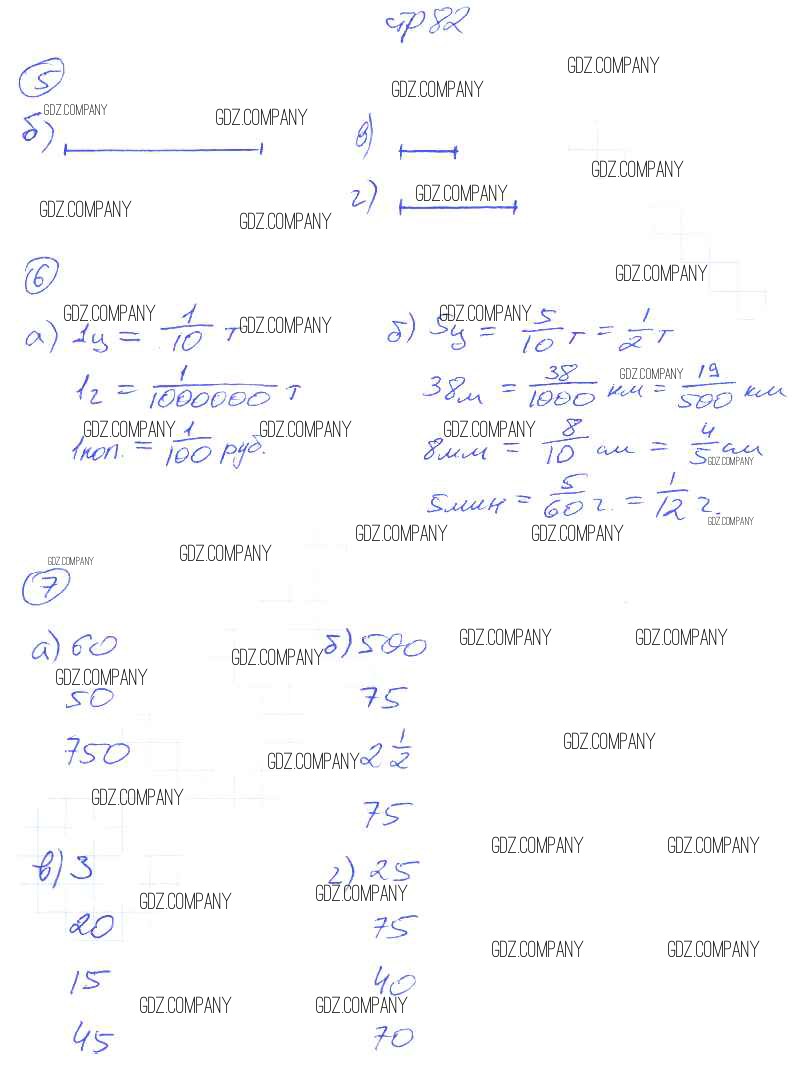 стр 82
GDZ.COMPANY
GDZ.COMPANY
5
GDZ.COMPANY
GDZ.COMPANY
б)
в)
GDZ.COMPANY
г)
GDZ.COMPANY
GDZ.COMPANY
GDZ.COMPANY
6
GDZ.COMPANY
GDZ.COMPANY
GDZ.COMPANY
GDZ.COMPANY
а) 1ц = 1/10 т
б) 5ц = 5/10 т = 1/2 т
GDZ.COMPANY
1г = 1/1000000 т
38м = 38/1000 км = 19/500 км
GDZ.COMPANY
GDZ.COMPANY
GDZ.COMPANY
1коп. = 1/100 руб.
8мм = 8/10 см = 4/5 см
GDZ.COMPANY
5мин = 5/60 ч. = 1/12 ч.
GDZ.COMPANY
GDZ.COMPANY
GDZ.COMPANY
GDZ.COMPANY
GDZ.COMPANY
7
а) 60
б) 500
GDZ.COMPANY
GDZ.COMPANY
GDZ.COMPANY
GDZ.COMPANY
50
75
GDZ.COMPANY
750
GDZ.COMPANY
2 1/2
GDZ.COMPANY
75
GDZ.COMPANY
GDZ.COMPANY
в) 3
г) 25
GDZ.COMPANY
GDZ.COMPANY
20
75
GDZ.COMPANY
GDZ.COMPANY
15
40
GDZ.COMPANY
GDZ.COMPANY
45
70